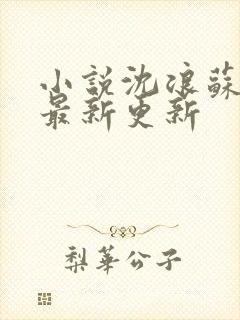 小説沈浪蘇
最新更新
梨華公子